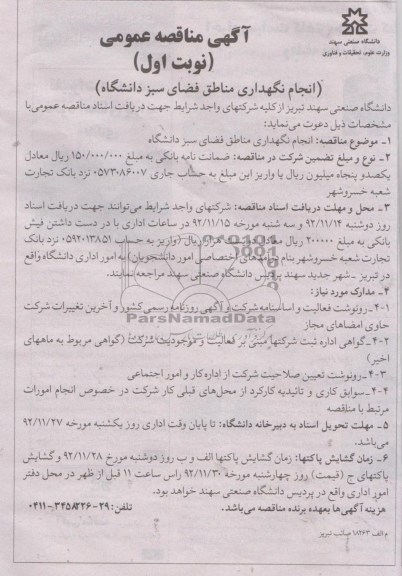 دانشگاه صنعتی سهند
وزارت علوم، تحقیقات و فناوری
آگهی مناقصه عمومی
(نوبت اول)
(انجام نگهداری مناطق فضای سبز دانشگاه)
دانشگاه صنعتی سهند تبریز از کلیه شرکتهای واجد شرایط جهت دریافت اسناد مناقصه عمومی با
مشخصات ذیل دعوت می‌نماید:
۱- موضوع مناقصه: انجام نگهداری مناطق فضای سبز دانشگاه
۲- نوع و مبلغ تضمین شرکت در مناقصه: ضمانت نامه بانکی به مبلغ ۱۵۰/۰۰۰/۰۰۰ ریال معادل
یکصدو پنجاه میلیون ریال یا واریز این مبلغ به حساب جاری ۰۵۷۳۰۸۶۰۰۷ نزد بانک تجارت
شعبه خسروشهر
۳- محل و مهلت دریافت اسناد مناقصه: شرکتهای واجد شرایط می‌توانند جهت دریافت اسناد
روز دوشنبه ۹۲/۱۱/۱۴ و سه شنبه مورخه ۹۲/۱۱/۱۵ در ساعات اداری با در دست داشتن فیش
بانکی به مبلغ ۲۰۰۰۰۰ ریال معادل دویست هزار ریال (واریز به حساب ۰۵۹۲۰۱۳۸۵۱ نزد بانک
تجارت شعبه خسروشهر بنام درآمدهای اختصاصی امور دانشجویان) به امور اداری دانشگاه واقع
در تبریز - شهر جدید سهند پردیس دانشگاه صنعتی سهند مراجعه نمایند.
۴- مدارک مورد نیاز:
۴-۱- رونوشت فعالیت و اساسنامه شرکت و آگهی روزنامه رسمی کشور و آخرین تغییرات شرکت
حاوی امضاهای مجاز
ParsNamadData
۴-۲- گواهی اداره ثبت شرکتها مبنی بر فعالیت و موجودیت شرکت (گواهی مربوط به ماههای
اخیر)
۴-۳- رونوشت تعیین صلاحیت شرکت از اداره کار و امور اجتماعی
۴-۴- سوابق کاری و تائیدیه کارکرد از محل‌های قبلی کار شرکت در خصوص انجام امورات
مرتبط با مناقصه
۵- مهلت تحویل اسناد به دبیرخانه دانشگاه: تا پایان وقت اداری روز یکشنبه مورخه ۹۲/۱۱/۲۷
می‌باشد.
۶- زمان گشایش پاکتها: زمان گشایش پاکتها الف و ب روز دوشنبه مورخ ۹۲/۱۱/۲۸ و گشایش
پاکتهای ج (قیمت) روز چهارشنبه مورخه ۹۲/۱۱/۳۰ راس ساعت ۱۱ قبل از ظهر در محل دفتر
امور اداری واقع در پردیس دانشگاه صنعتی سهند خواهد بود.
هزینه آگهی‌ها بعهده برنده مناقصه می‌باشد. تلفن: ۲۹-۳۴۵۸۲۲۶-۰۴۱۱
م الف ۱۸۲۶۳ صائب تبریز